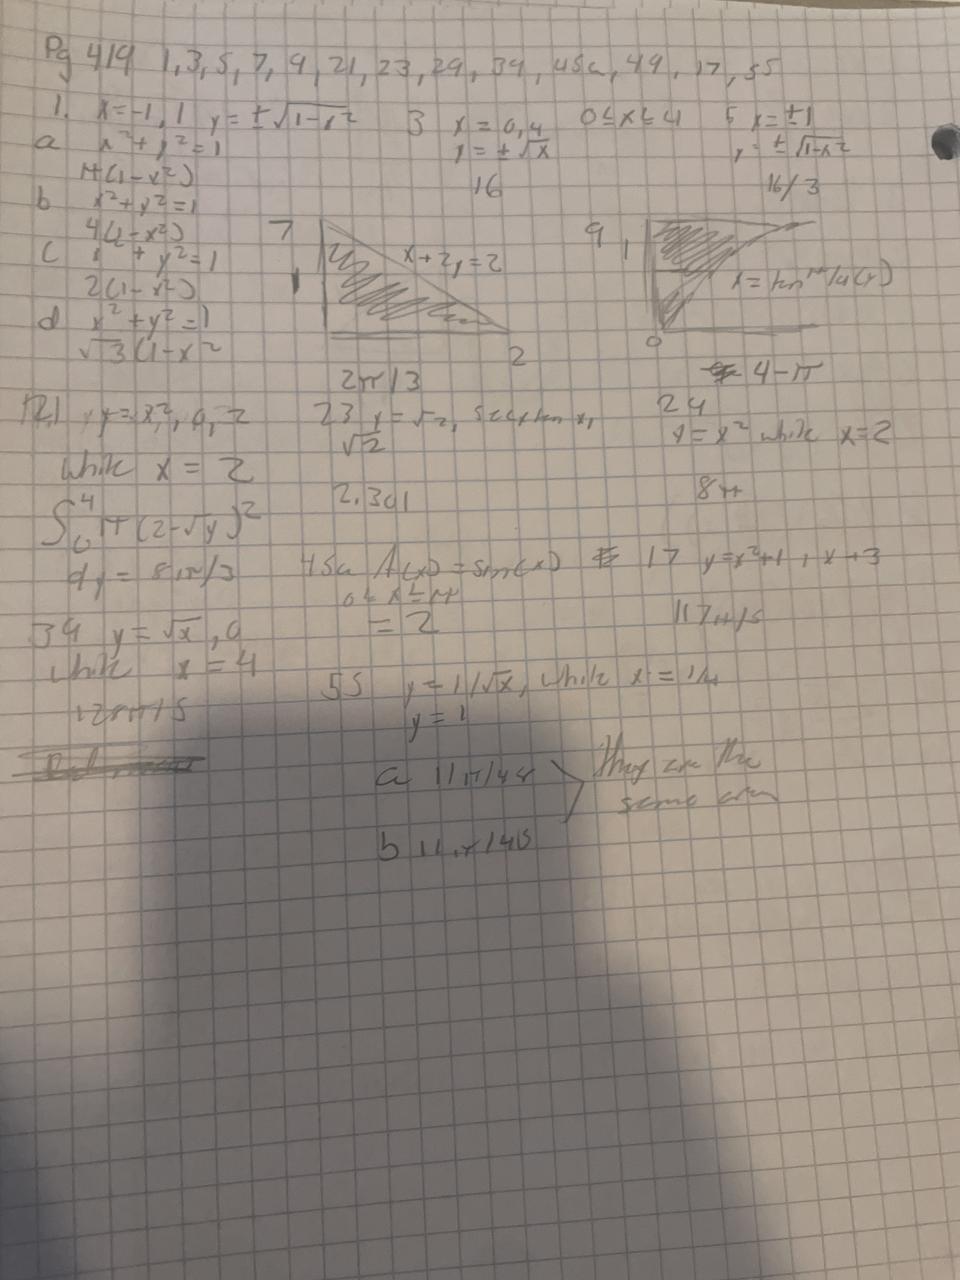 Pg 419 1,3,5,7,9,21,23,29,39,45a,49,17,55
1. x=-1,1 y=±√1-x²
a x²+y²=1
π(1-x²)
b x²+y²=1
4(1-x²)
c x²+y²=1
2(1-x²)
d x²+y²=1
√3(1-x²
3 x=0,4 0≤x≤4
y=±√x
16
5 x=±1
y=±√1-x²
16/3
7
x+2y=2
2
2π/3
9 1
0
4-π
21 y=x², 0, 2
while x=2
∫₀⁴ π(2-√y)²
dy=8π/3
23 y=√2, secxtanx,
√2
2.301
y=x² while x=2
8π
39 y=√x, 0
while x=4
45a A(x)=sin(x)
0≤x≤π
=2
17 y=x²+1, x+3
117π/5
55 y=1/√x, while x=1/4
y=1
a 11π/48
b 11π/48
they are the
same